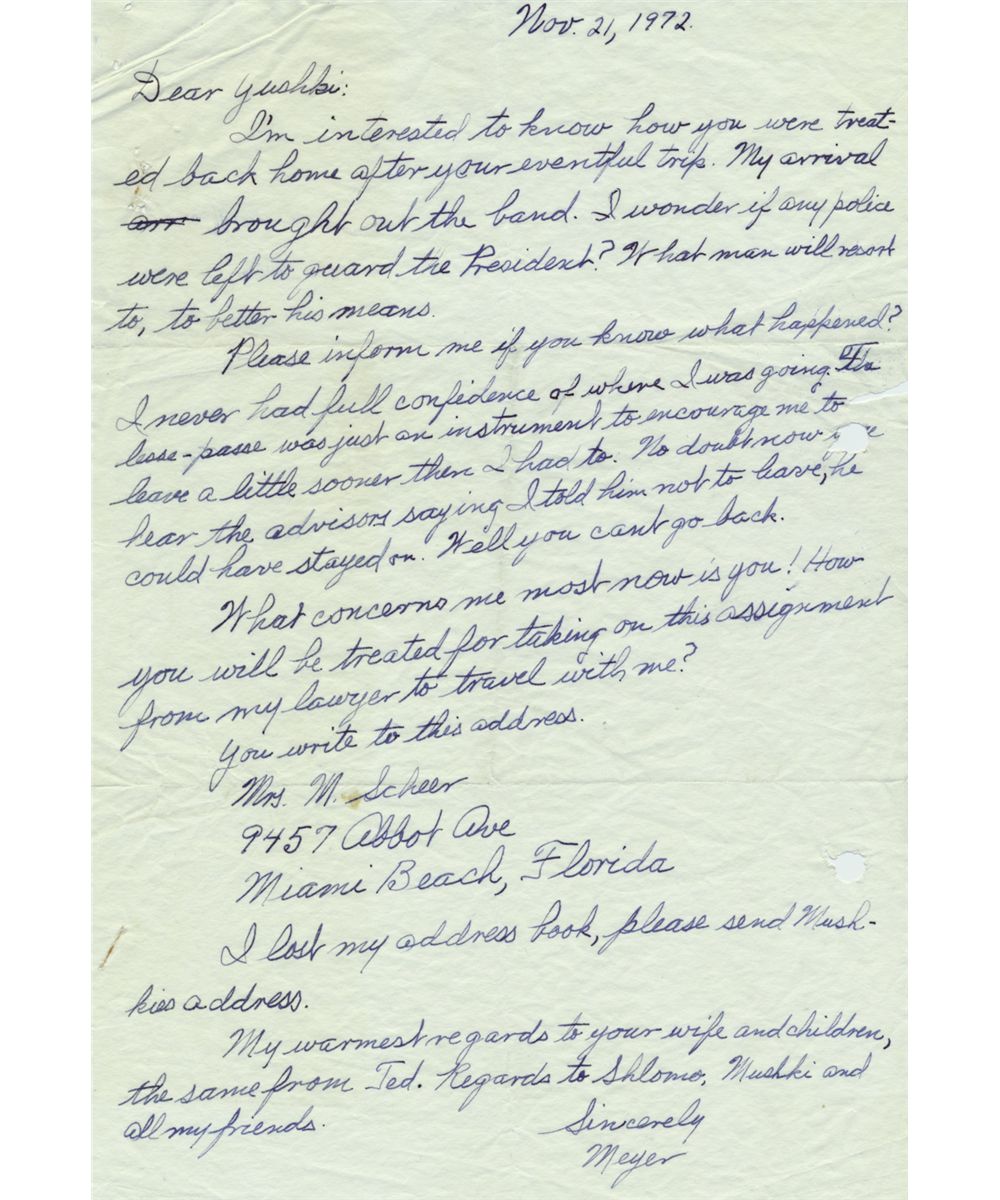 Nov. 21, 1972.
Dear Yushki:
I'm interested to know how you were treat-
ed back home after your eventful trip. My arrival
arr brought out the band. I wonder if any police
were left to guard the President? What man will resort
to, to better his means.
Please inform me if you know what happened?
I never had full confidence of where I was going. The
lesse-passe was just an instrument to encourage me to
leave a little sooner then I had to. No doubt now
hear the advisors saying I told him not to leave, he
could have stayed on. Well you cant go back.
What concerns me most now is you! How
you will be treated for taking on this assignment
from my lawyer to travel with me?
You write to this address.
Mrs. M. Scheer
9457 Abbot Ave
Miami Beach, Florida
I lost my address book, please send Mush-
kies address.
My warmest regards to your wife and children,
the same from Ted. Regards to Shlomo, Mushki and
all my friends.
Sincerely
Meyer